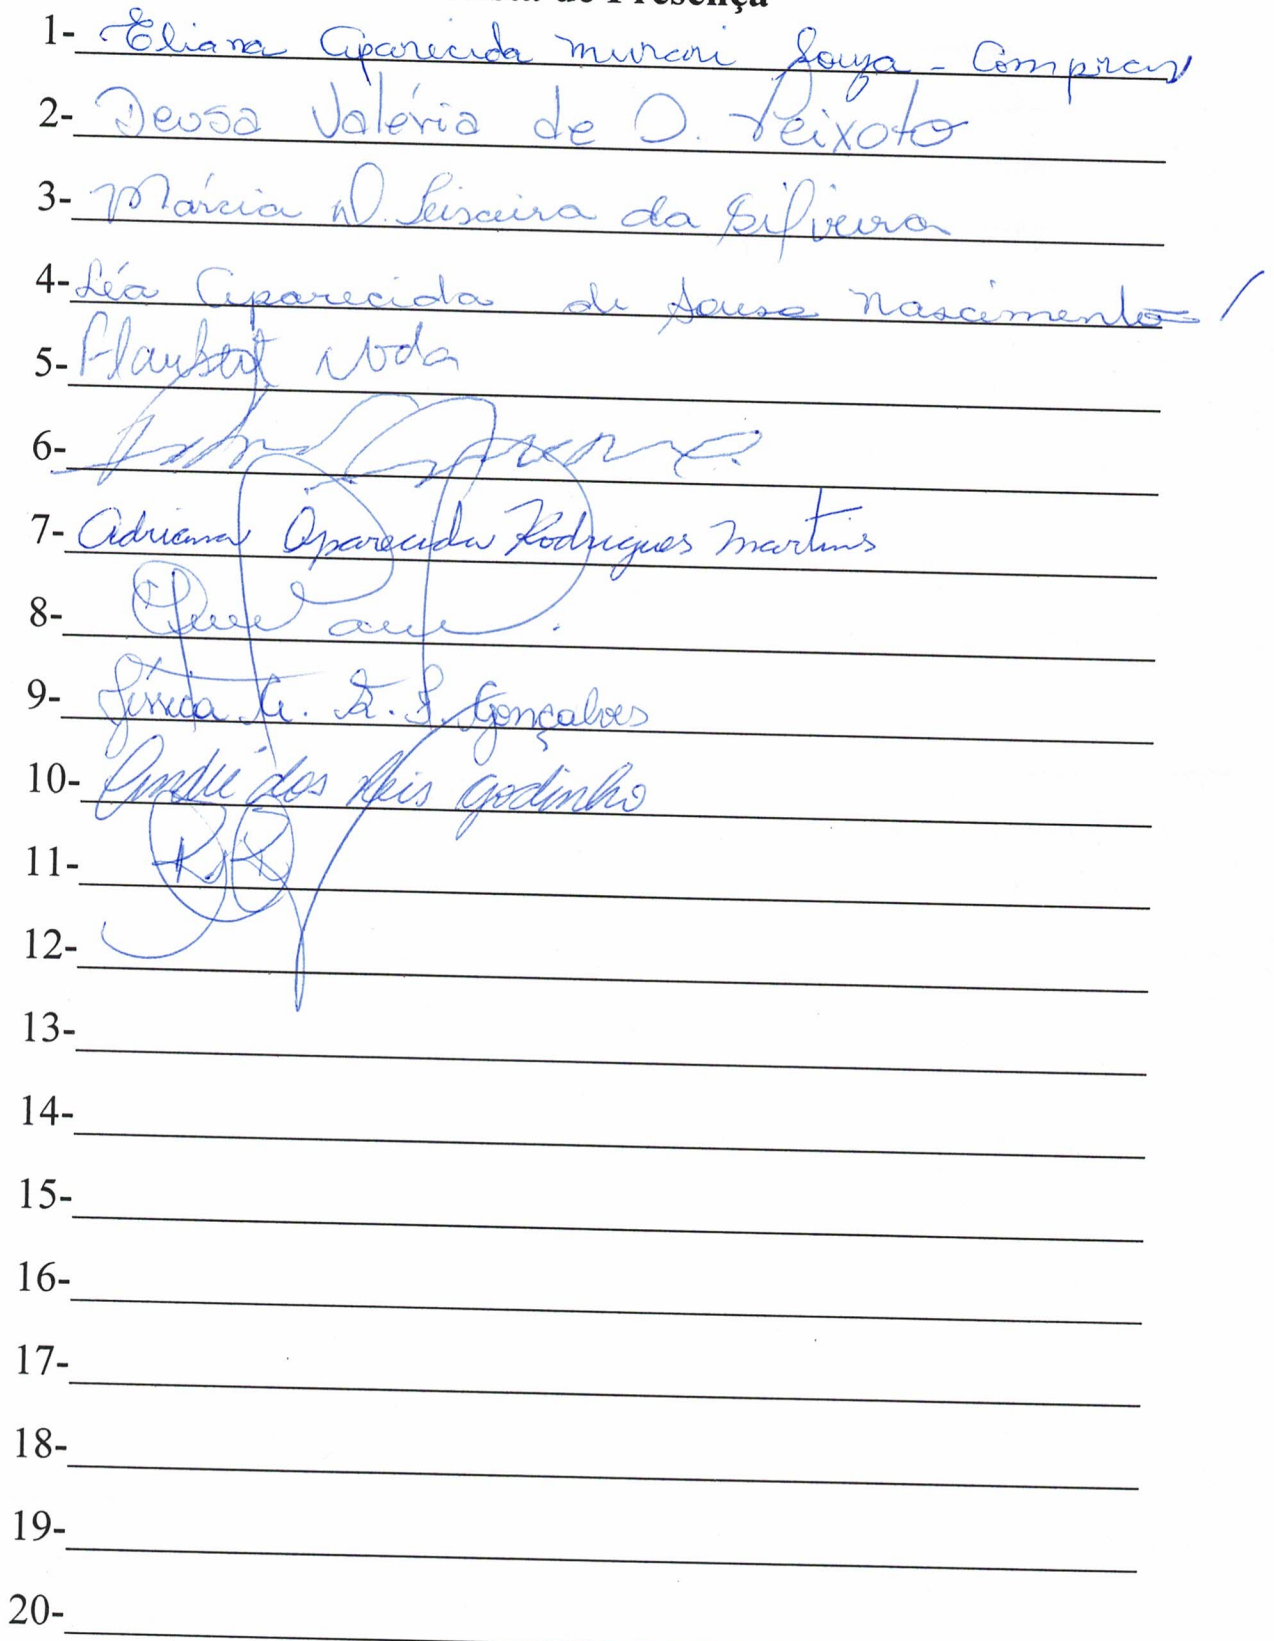 de Presença
1- Eliana Aparecida Murari Souza - Compras
2- Deusa Valéria de O. Peixoto
3- Márcia D. Teixeira da Silveira
4- Léa Aparecida de Sousa Nascimento
5- Flaubert Noda
6-
7- Adriana Aparecida Rodrigues Martins
8-
9- Gonçalves
10- André dos Reis Godinho
11-
12-
13-
14-
15-
16-
17-
18-
19-
20-